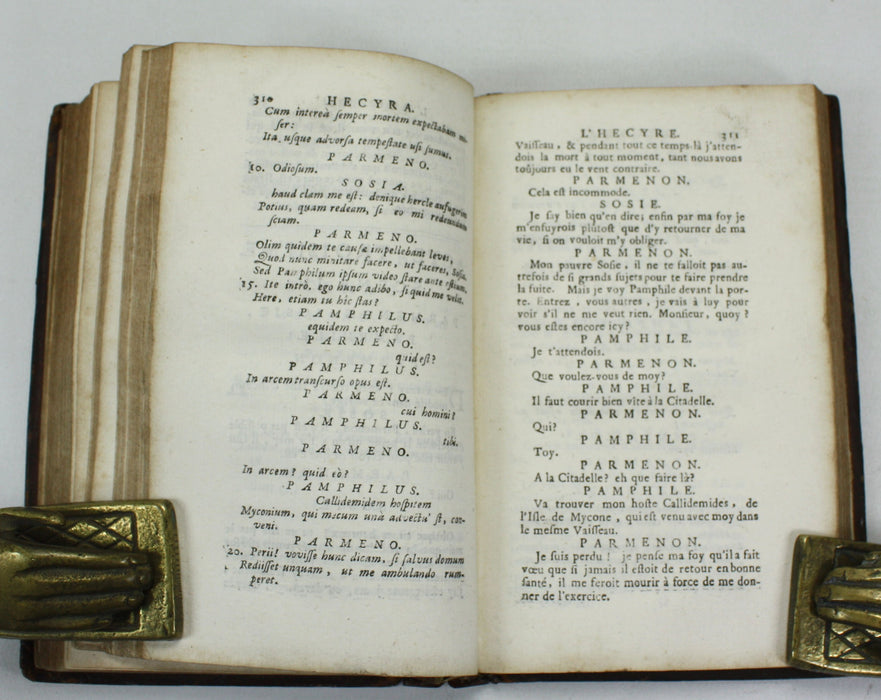 310 HECYRA.
Cum intereà ſemper mortem expectabam mi-
ſer:
Ita uſque adverſa tempeſtate uſi ſumus.
PARMENO.
10. Odioſum.
SOSIA.
haud clam me eſt: denique hercle aufugerim
Potius, quam redeam, ſi eo mi redeundum
ſciam.
PARMENO.
Olim quidem te cauſæ impellebant leves,
Quod nunc minitare facere, ut faceres, Soſia.
Sed Pamphilum ipſum video ſtare ante oſtium.
15. Ite intrò. ego hunc adibo, ſi quid me velit.
Here, etiam tu hîc ſtas?
PAMPHILUS.
equidem te expecto.
PARMENO.
quid eſt?
PAMPHILUS.
In arcem tranſcurſo opus eſt.
PARMENO.
cui homini?
PAMPHILUS.
tibi.
PARMENO.
In arcem? quid eò?
PAMPHILUS.
Callidemidem hoſpitem
Myconium, qui mecum unà advectu' ſt, con-
veni.
PARMENO.
20. Perii! voviſſe hunc dicam, ſi ſalvus domum
Rediiſſet unquam, ut me ambulando rum-
peret.
L'HECYRE. 311
Vaiſſeau, & pendant tout ce temps-là j'atten-
dois la mort à tout moment, tant nous avons
toûjours eu le vent contraire.
PARMENON.
Cela eſt incommode.
SOSIE.
Je ſay bien qu'en dire; enfin par ma foy je
m'enfuyrois plutoſt que d'y retourner de ma
vie, ſi on vouloit m'y obliger.
PARMENON.
Mon pauvre Soſie, il ne te falloit pas au-
trefois de ſi grands ſujets pour te faire prendre
la fuite. Mais je voy Pamphile devant la por-
te. Entrez, vous autres, je vais à luy pour
voir s'il ne me veut rien. Monſieur, quoy?
vous eſtes encore icy?
PAMPHILE.
Je t'attendois.
PARMENON.
Que voulez-vous de moy?
PAMPHILE.
Il faut courir bien vîte à la Citadelle.
PARMENON.
Qui?
PAMPHILE.
Toy.
PARMENON.
A la Citadelle? eh que faire là?
PAMPHILE.
Va trouver mon hoſte Callidemides, de
l'Iſle de Mycone, qui eſt venu avec moy dans
le meſme Vaiſſeau.
PARMENON.
Je ſuis perdu! je penſe ma foy qu'il a fait
vœu que ſi jamais il eſtoit de retour en bonne
ſanté, il me feroit mourir à force de me don-
ner de l'exercice.